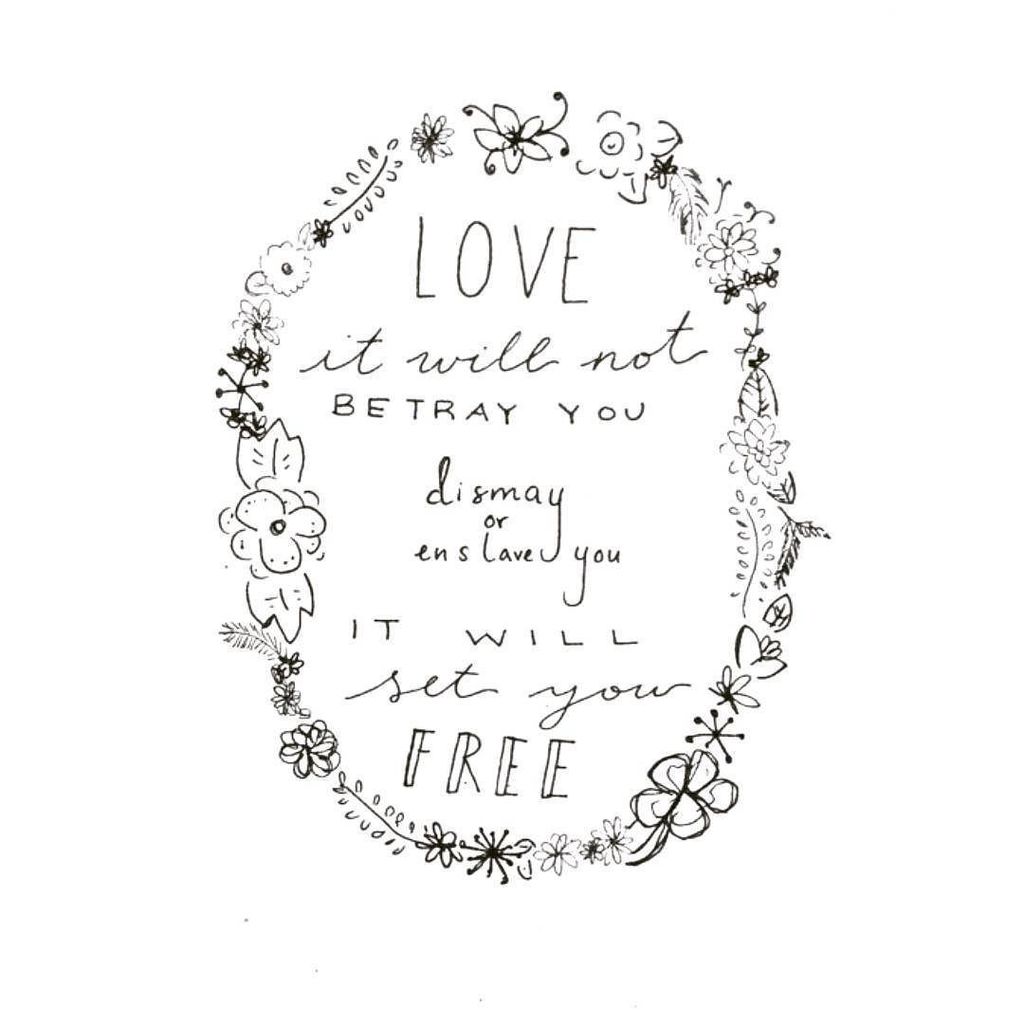 LOVE
it will not
BETRAY YOU
dismay
or
enslave you
IT WILL
set you
FREE